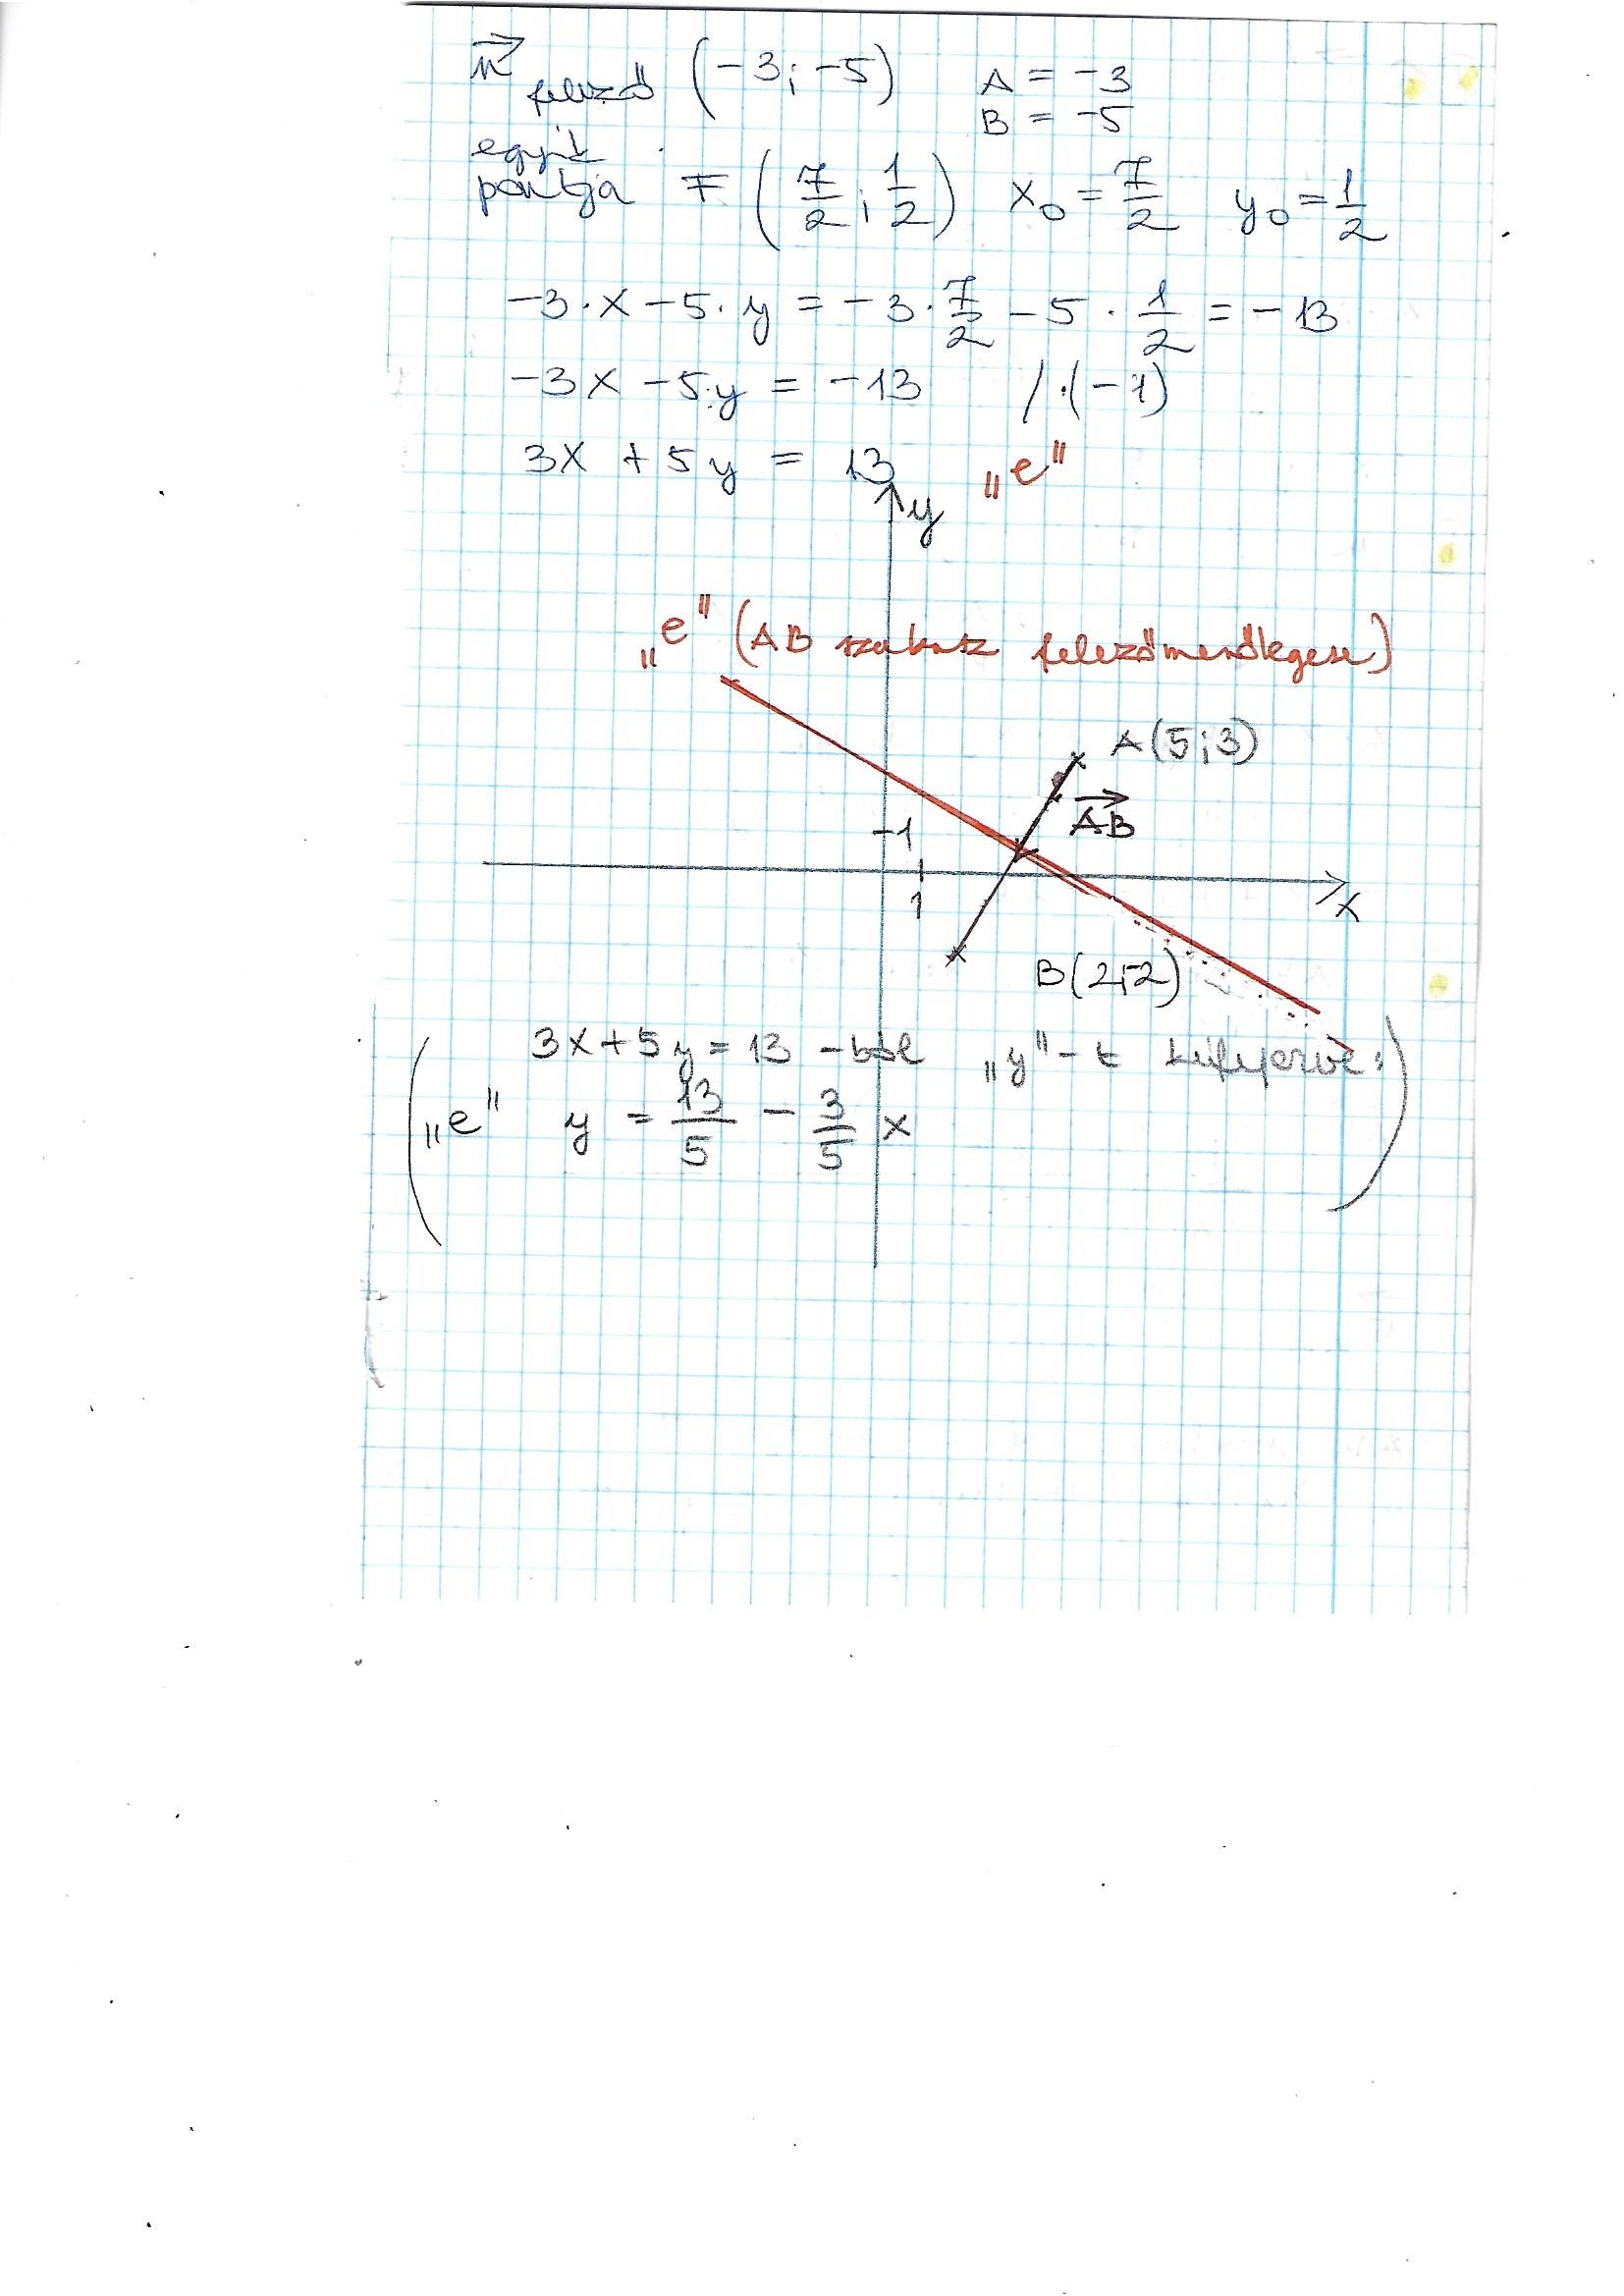 n⃗ felező (-3; -5) A = -3
B = -5
egyik
pontja F (7/2; 1/2) x₀ = 7/2 y₀ = 1/2
-3·x - 5·y = -3·7/2 - 5·1/2 = -13
-3x - 5·y = -13 /·(-1)
3x + 5y = 13 „e"
y
„e" (AB szakasz felezőmerőlegese)
A(5;3)
AB⃗
1
x
1
B(2;-2)
3x+5y = 13 -ból „y"-t kifejezve:
„e" y = 13/5 - 3/5 x